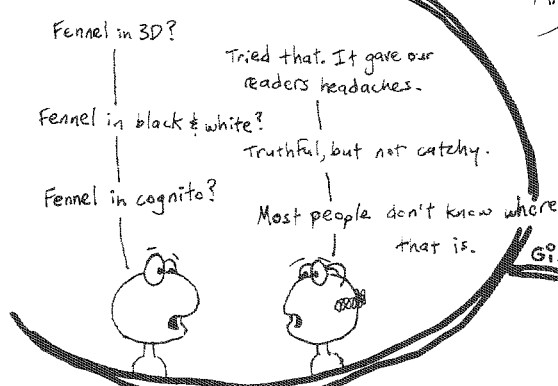 Fennel in 3D?
Tried that. It gave our
readers headaches.
Fennel in black & white?
Truthful, but not catchy.
Fennel in cognito?
Most people don't know where
that is.
Gi